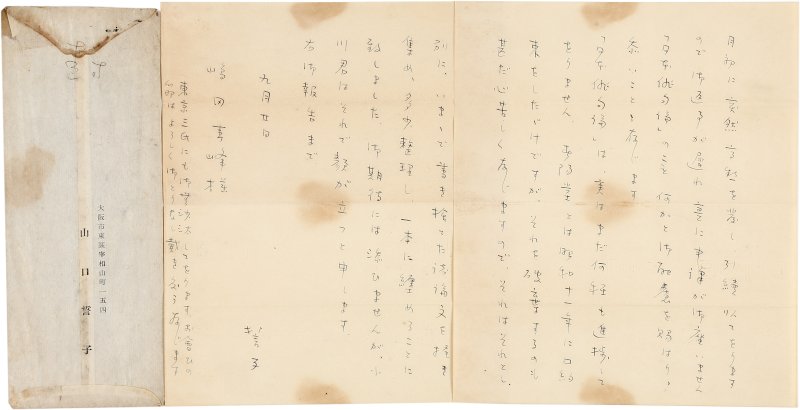 月初に突然高熱を発し引続臥てをります
ので御返事が遅れ 実に申訳が御座いません
俳句論」のこと 何かと御配慮を賜はり
忝いことと存じます
俳句論」は、実はまだ何程も進捗して
をりません。 とは昭和十一年に口約
束をしただけですが、それを破棄するのも
甚だ心苦しく存じますので、それはそれとし
別に、いままで書き捨てた評論文を掻き
集め、多少整理し、一本に纏めることに
致しました。御期待には添ひませんが、小
川君はそれで顔が立つと申します
右御報告まで
九月廿日
誓子
嶋田青峰様
東京三氏にも をります お会ひの
節はよろしくおとりなし戴き度う存じます
大阪市東区宰相山町一五四
山口誓子